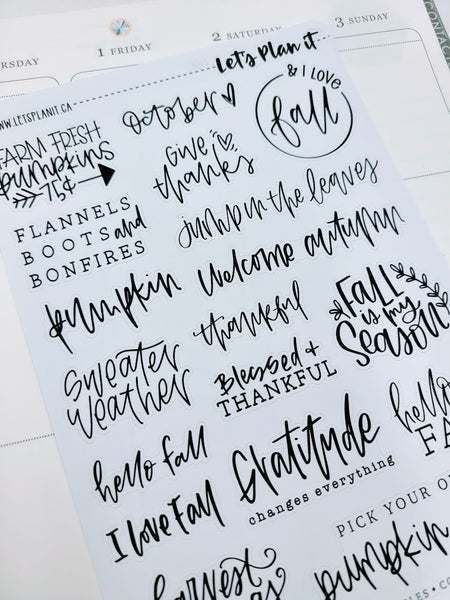 RSDAY
1 FRIDAY
2 SATURDAY
3 SUNDAY
Let's Plan it
WW.LETSPLANIT.CA
October
& I LOVE
fall
FARM FRESH
pumpkins
75¢
Give
thanks
jump in the leaves
FLANNELS
BOOTS and
BONFIRES
Welcome autumn
pumpkin
thankful
FALL
is my
Season
sweater
weather
Blessed +
THANKFUL
hello
FA
hello fall
Gratitude
changes everything
I love Fall
PICK YOUR O
harvest
pumpkin